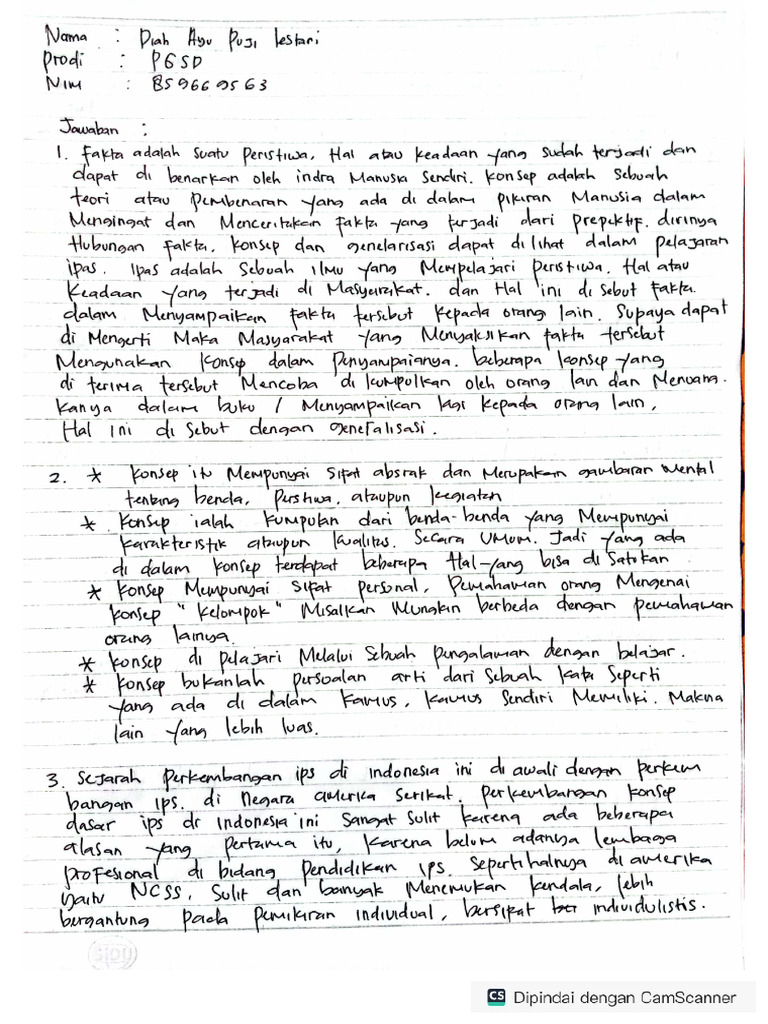 Nama : Diah Ayu Puji lestari
Prodi : PGSD
NIM : 859669563
Jawaban :
1. Fakta adalah suatu Peristiwa, Hal atau keadaan yang sudah terjadi dan
dapat di benarkan oleh indra Manusia Sendiri. Konsep adalah Sebuah
teori atau Pembenaran yang ada di dalam pikiran Manusia dalam
Mengingat dan Menceritakan fakta yang terjadi dari prepektif. dirinya
Hubungan fakta, Konsep dan genelarisasi dapat di lihat dalam pelajaran
ipas. Ipas adalah Sebuah ilmu yang Mempelajari peristiwa. Hal atau
Keadaan yang terjadi di Masyarakat. dan Hal ini di sebut fakta.
dalam Menyampaikan fakta tersebut kepada orang lain. Supaya dapat
di Mengerti Maka Masyarakat yang Menyaksikan fakta tersebut
Mengunakan Konsep dalam Penyampaianya. beberapa konsep yang
di terima tersebut Mencoba di kumpulkan oleh orang lain dan Menuang.
kanya dalam buku / Menyampaikan lagi kepada orang lain,
Hal ini di sebut dengan generalisasi.
2. * Konsep itu Mempunyai Sifat absrak dan Merupakan gambaran Mental
tentang benda, Peristiwa, ataupun kegiatan
* Konsep ialah kumpulan dari benda-benda yang Mempunyai
karakteristik ataupun kualitas. Secara Umum. Jadi yang ada
di dalam konsep terdapat beberapa Hal-yang bisa di Satukan
* Konsep Mempunyai Sifat personal, Pemahaman orang Mengenai
konsep "Kelompok" Misalkan Mungkin berbeda dengan pemahaman
orang lainya.
* konsep di pelajari Melalui Sebuah pengalaman dengan belajar.
* konsep bukanlah persoalan arti dari Sebuah kata Seperti
yang ada di dalam kamus, kamus Sendiri Memiliki. Makna
lain yang lebih luas.
3. Sejarah perkembangan ips di indonesia ini di awali dengan perkem
bangan ips. di Negara amerika Serikat. perkembangan konsep
dasar ips di Indonesia ini Sangat Sulit karena ada beberapa
alasan yang pertama itu, karena belum adanya lembaga
profesional di bidang pendidikan ips. Seperti halnya di amerika
yaitu NCSS, Sulit dan banyak Menemukan kendala, lebih
bergantung pada pemikiran individual, bersifat individulistis.
SIDU
CS Dipindai dengan CamScanner